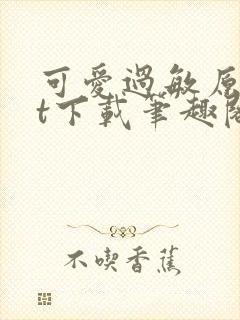 可愛過敏原
t下載筆趣閣
不喫香蕉